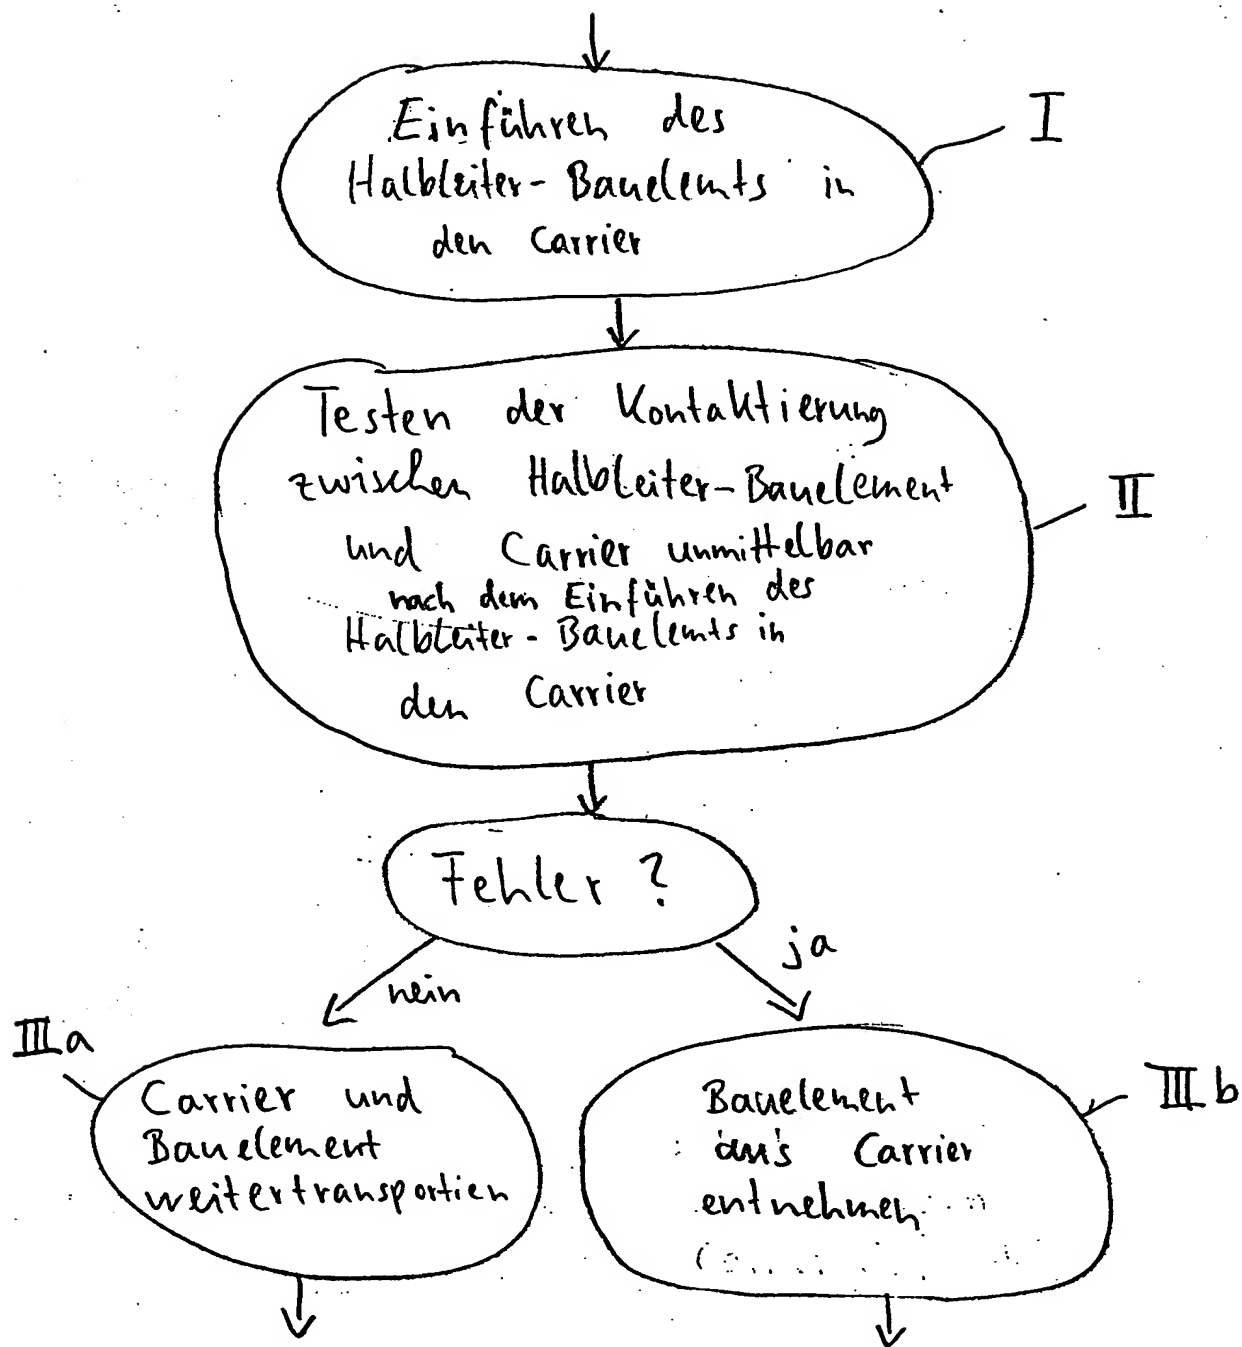 Einführen des
I
Halbleiter-Bauelemts in
den Carrier
Testen der Kontaktierung
zwischen Halbleiter-Bauelement
II
und Carrier unmittelbar
nach dem Einführen des
Halbleiter-Bauelemts in
den Carrier
Fehler ?
ja
nein
III a
III b
Carrier und
Bauelement
weitertransportien
Bauelement
aus Carrier
entnehmen